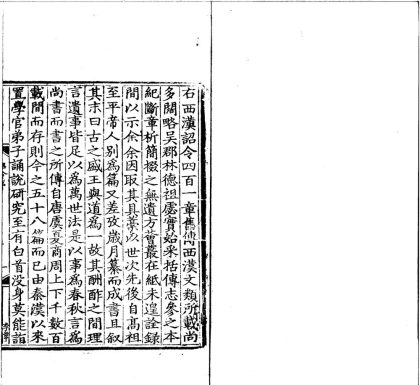 右西漢詔令四百一章舊傳西漢文類所載尚
多闊略吳郡林德祖虙實始采括傳志參之本
紀斷章析簡掇之無遺方薈叢在紙未遑詮録
間以示余余因取其具藁以世次先後自髙祖
至平帝人别為篇又差攷歳月纂而成書且叙
其末曰古之盛王與道為一故其酬酢之間理
言遺事皆足以為萬世法是以事為春秋言為
尚書而書之所傳自唐虞夏商周上下千數百
載間而存則今之五十八篇而已由秦漢以來
置學官弟子誦説研究至有白首没身莫能詣